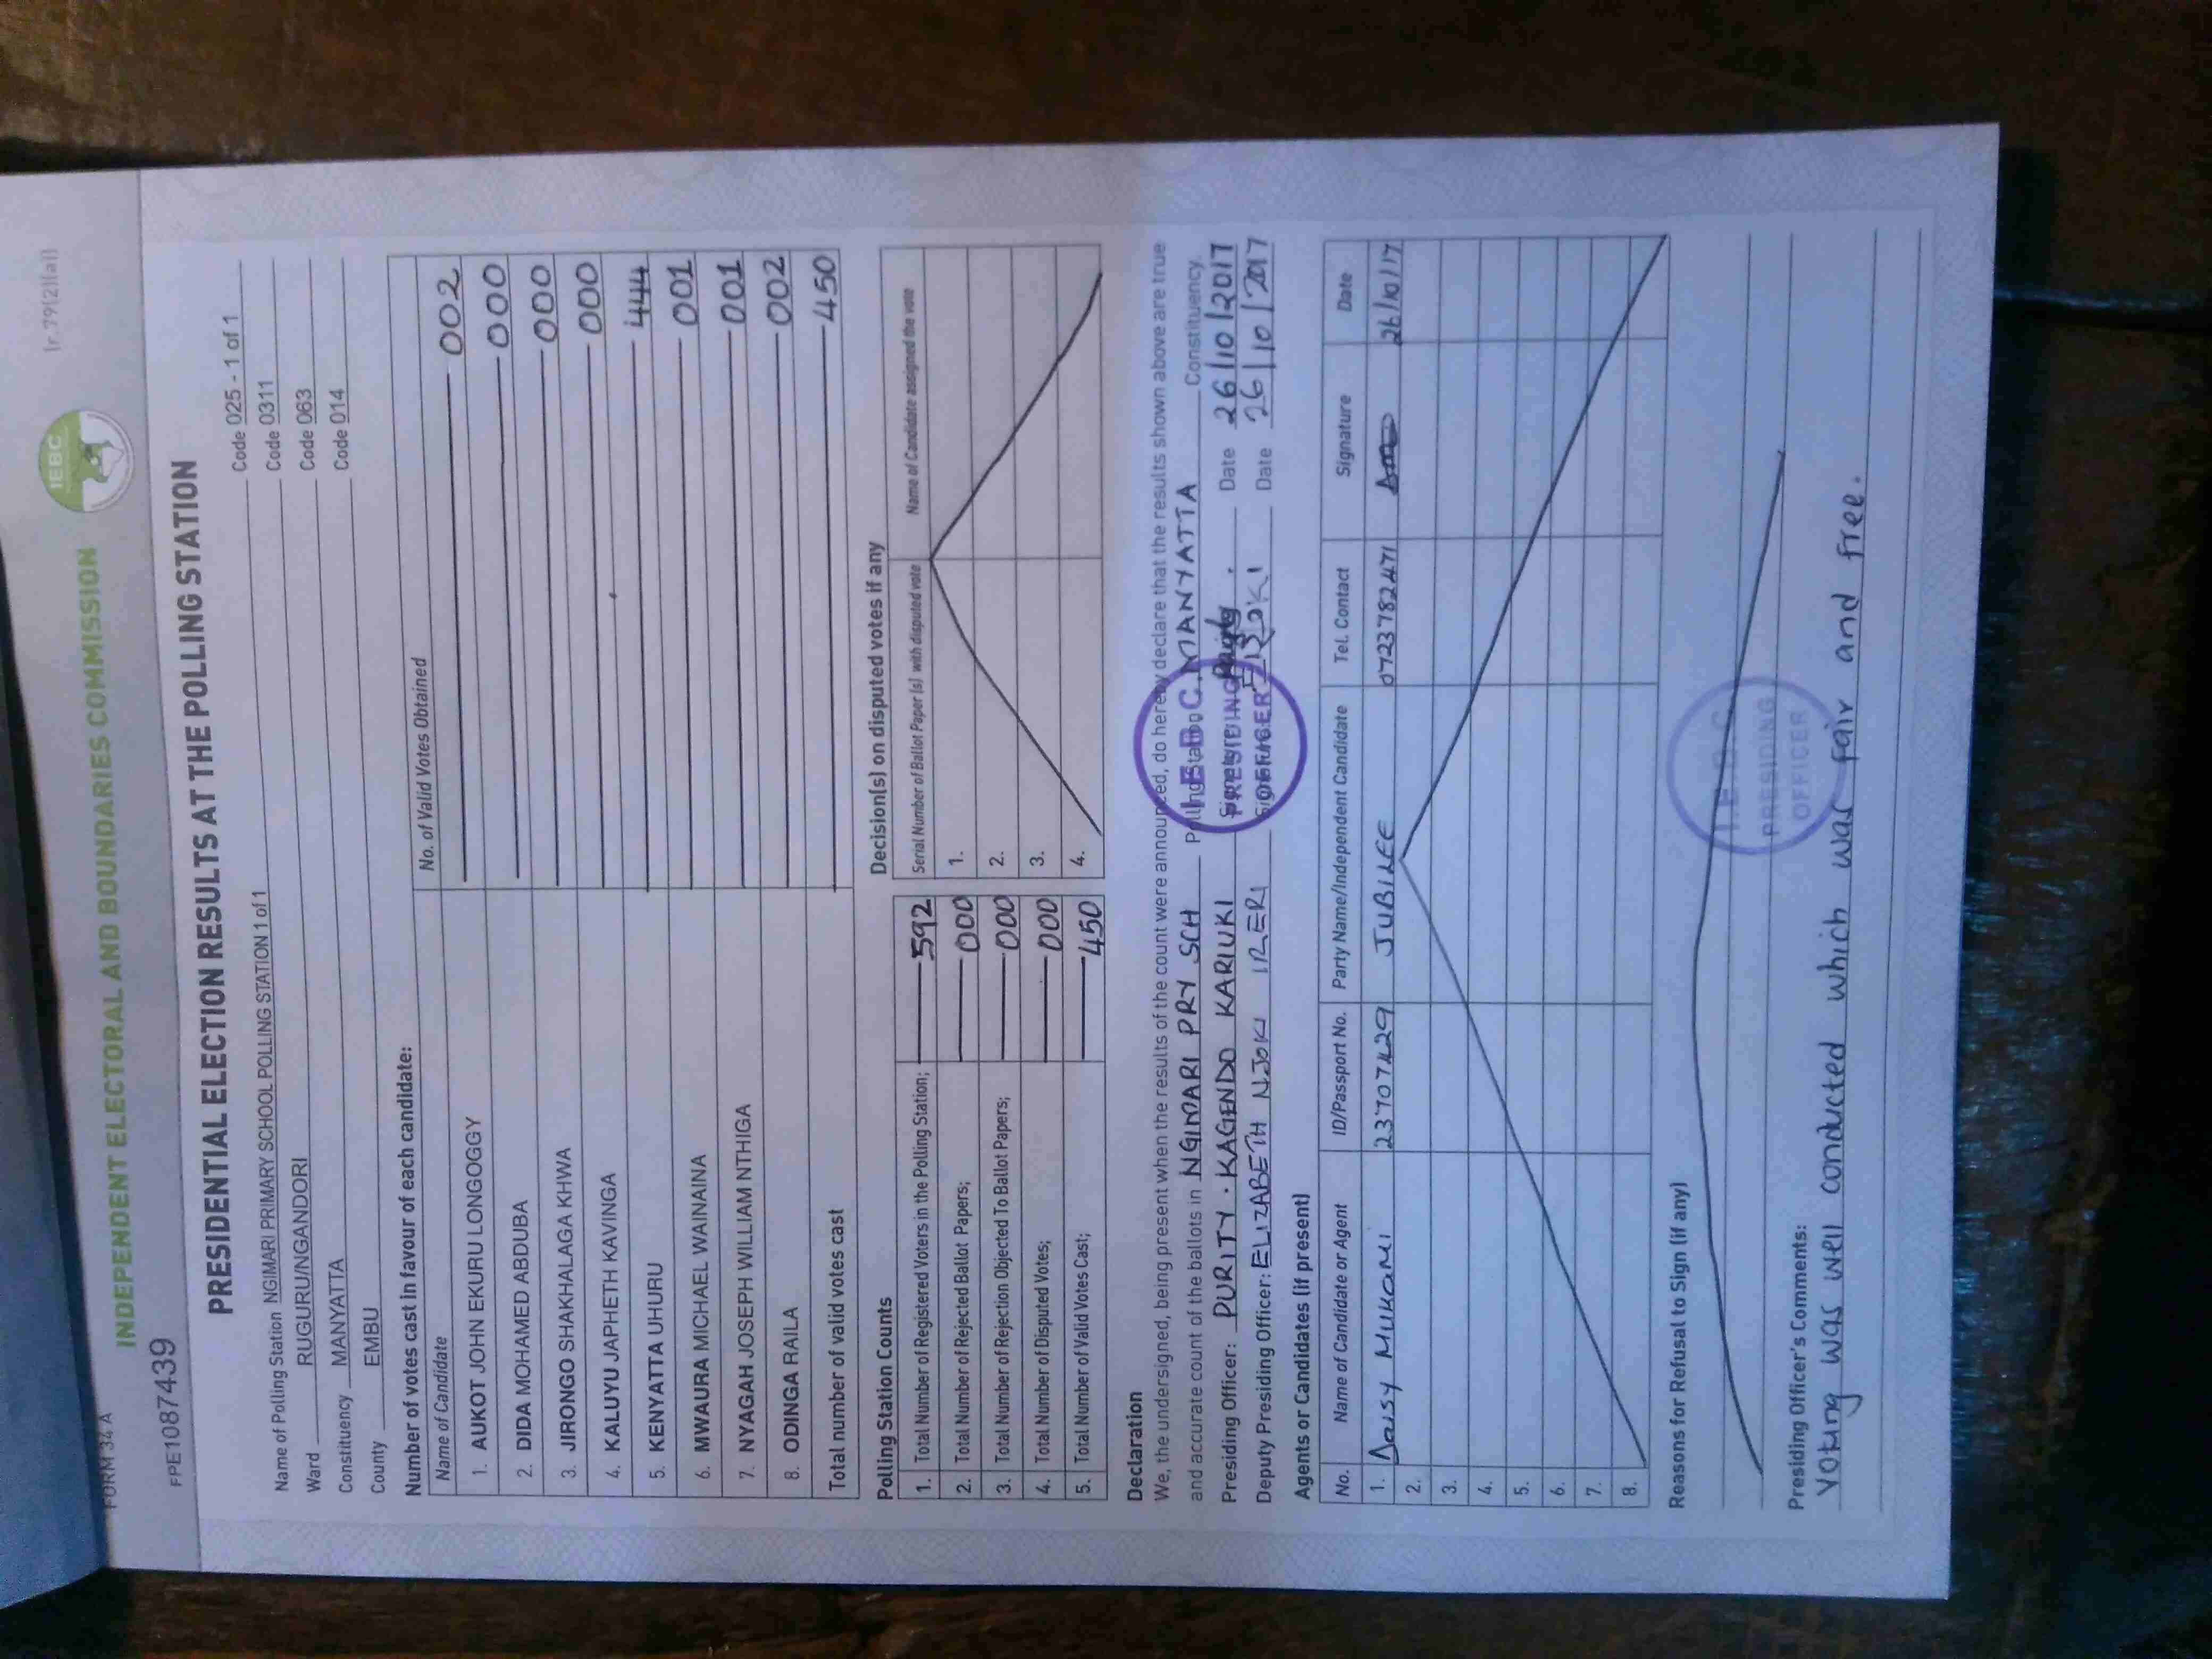 FORM 34 A
[r.79(2)(a)]
INDEPENDENT ELECTORAL AND BOUNDARIES COMMISSION
IEBC
FPE1087439
PRESIDENTIAL ELECTION RESULTS AT THE POLLING STATION
Name of Polling Station NGIMARI PRIMARY SCHOOL POLLING STATION 1 of 1 Code 025 - 1 of 1
Ward RUGURU/NGANDORI Code 0311
Constituency MANYATTA Code 063
County EMBU Code 014
Number of votes cast in favour of each candidate:
Name of Candidate No. of Valid Votes Obtained
1. AUKOT JOHN EKURU LONGOGGY 002
2. DIDA MOHAMED ABDUBA 000
3. JIRONGO SHAKHALAGA KHWA 000
4. KALUYU JAPHETH KAVINGA 000
5. KENYATTA UHURU 444
6. MWAURA MICHAEL WAINAINA 001
7. NYAGAH JOSEPH WILLIAM NTHIGA 001
8. ODINGA RAILA 002
Total number of valid votes cast 450
Polling Station Counts
1. Total Number of Registered Voters in the Polling Station; 592
2. Total Number of Rejected Ballot Papers; 000
3. Total Number of Rejection Objected To Ballot Papers; 000
4. Total Number of Disputed Votes; 000
5. Total Number of Valid Votes Cast; 450
Decision(s) on disputed votes if any
Serial Number of Ballot Paper (s) with disputed vote Name of Candidate assigned the vote
1.
2.
3.
4.
Declaration
We, the undersigned, being present when the results of the count were announced, do hereby declare that the results shown above are true
and accurate count of the ballots in NGIMARI PRY SCH Polling Station MANYATTA Constituency.
Presiding Officer: PURITY . KAGENDO KARIUKI Date 26/10/2017
Deputy Presiding Officer: ELIZABETH NJOKI IRERI Date 26/10/2017
I.E.B.C.
PRESIDING
OFFICER
Agents or Candidates (if present)
No. Name of Candidate or Agent ID/Passport No. Party Name/Independent Candidate Tel. Contact Signature Date
1. Daisy MUKAMI 23707429 JUBILEE 0723782471 26/10/17
2.
3.
4.
5.
6.
7.
8.
Reasons for Refusal to Sign (if any)
I.E.B.C
PRESIDING
OFFICER
Presiding Officer's Comments:
Voting was well conducted which was fair and free.